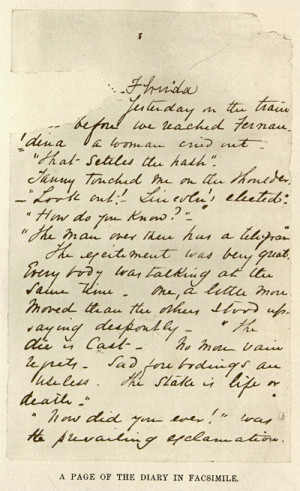 1
Florida
Yesterday on the train
-- before we reached Fernan
dina a woman cried out -
"That settles the hash".
Tanny touched me on the shoulder
- "Look out! Lincoln's elected".
"How do you know?" -
"The man over there has a telegram"
The excitement was very great.
Every body was talking at the
same time - One, a little more
moved than the others stood up -
saying despondently - "The
die is cast - No more vain
regrets - Sad fore bodings are
useless. The Stake is life or
death -"
"Now did you ever!" was
the prevailing exclamation.
A PAGE OF THE DIARY IN FACSIMILE.